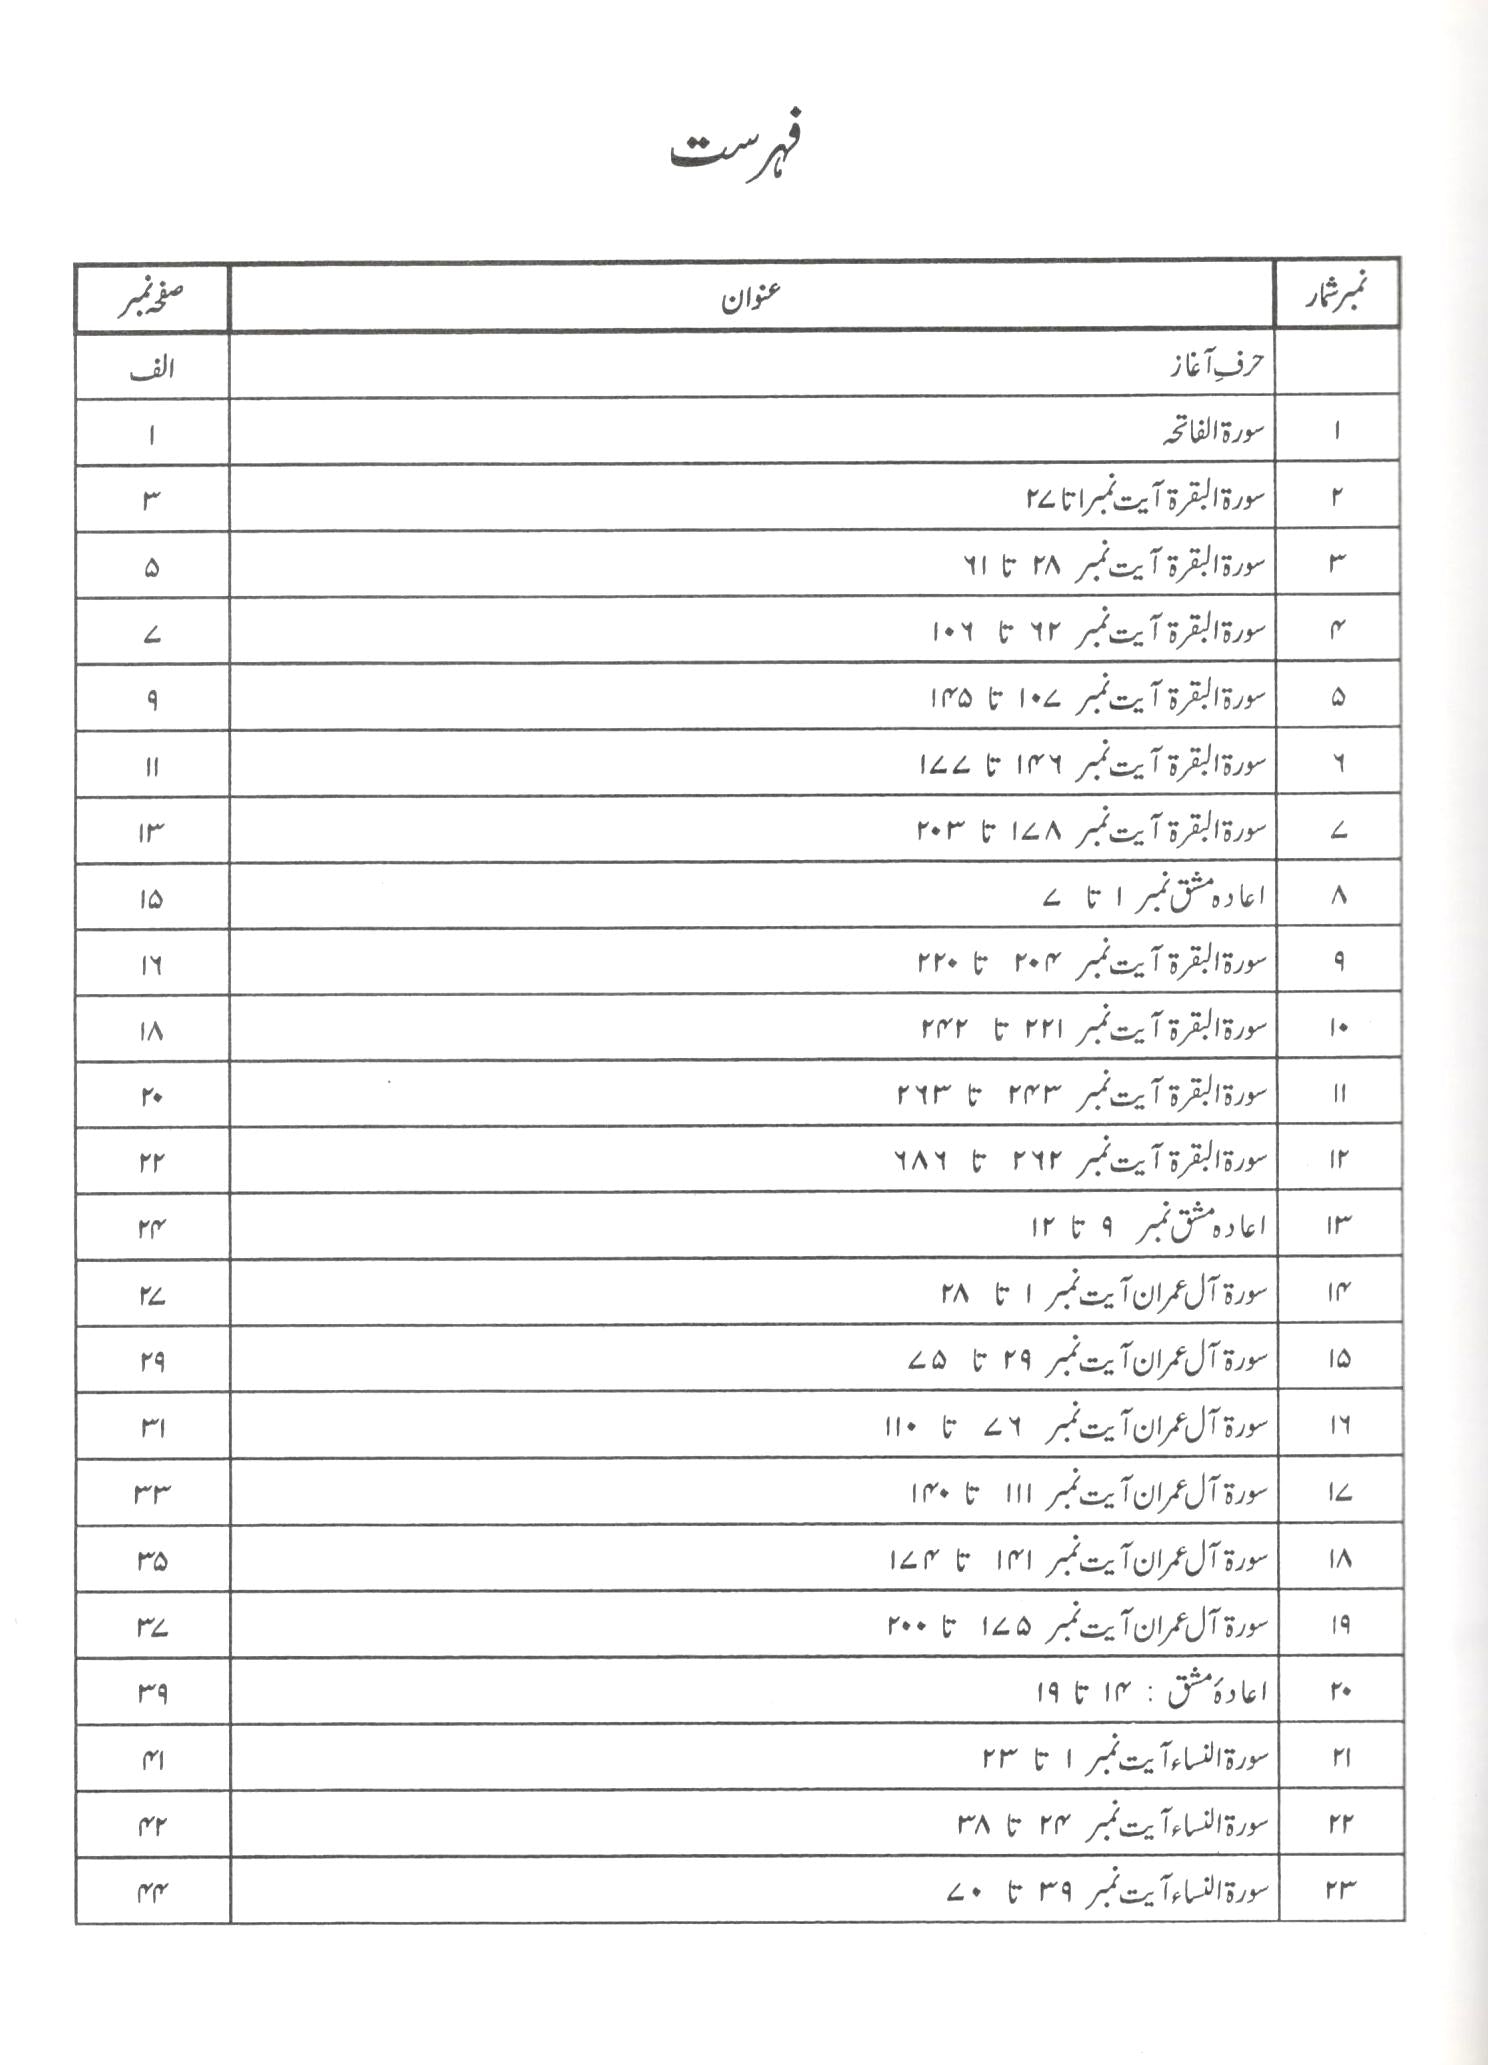 فہرست
نمبر شمار عنوان صفحہ نمبر
حرفِ آغاز الف
۱ سورۃ الفاتحہ ۱
۲ سورۃ البقرۃ آیت نمبر ۱ تا ۲۷ ۳
۳ سورۃ البقرۃ آیت نمبر ۲۸ تا ۶۱ ۵
۴ سورۃ البقرۃ آیت نمبر ۶۲ تا ۱۰۶ ۷
۵ سورۃ البقرۃ آیت نمبر ۱۰۷ تا ۱۴۵ ۹
۶ سورۃ البقرۃ آیت نمبر ۱۴۶ تا ۱۷۷ ۱۱
۷ سورۃ البقرۃ آیت نمبر ۱۷۸ تا ۲۰۳ ۱۳
۸ اعادہ مشق نمبر ۱ تا ۷ ۱۵
۹ سورۃ البقرۃ آیت نمبر ۲۰۴ تا ۲۲۰ ۱۶
۱۰ سورۃ البقرۃ آیت نمبر ۲۲۱ تا ۲۴۲ ۱۸
۱۱ سورۃ البقرۃ آیت نمبر ۲۴۳ تا ۲۶۳ ۲۰
۱۲ سورۃ البقرۃ آیت نمبر ۲۶۲ تا ۶۸۶ ۲۲
۱۳ اعادہ مشق نمبر ۹ تا ۱۲ ۲۴
۱۴ سورۃ آل عمران آیت نمبر ۱ تا ۲۸ ۲۷
۱۵ سورۃ آل عمران آیت نمبر ۲۹ تا ۷۵ ۲۹
۱۶ سورۃ آل عمران آیت نمبر ۷۶ تا ۱۱۰ ۳۱
۱۷ سورۃ آل عمران آیت نمبر ۱۱۱ تا ۱۴۰ ۳۳
۱۸ سورۃ آل عمران آیت نمبر ۱۴۱ تا ۱۷۴ ۳۵
۱۹ سورۃ آل عمران آیت نمبر ۱۷۵ تا ۲۰۰ ۳۷
۲۰ اعادۂ مشق : ۱۴ تا ۱۹ ۳۹
۲۱ سورۃ النساء آیت نمبر ۱ تا ۲۳ ۴۱
۲۲ سورۃ النساء آیت نمبر ۲۴ تا ۳۸ ۴۲
۲۳ سورۃ النساء آیت نمبر ۳۹ تا ۷۰ ۴۴